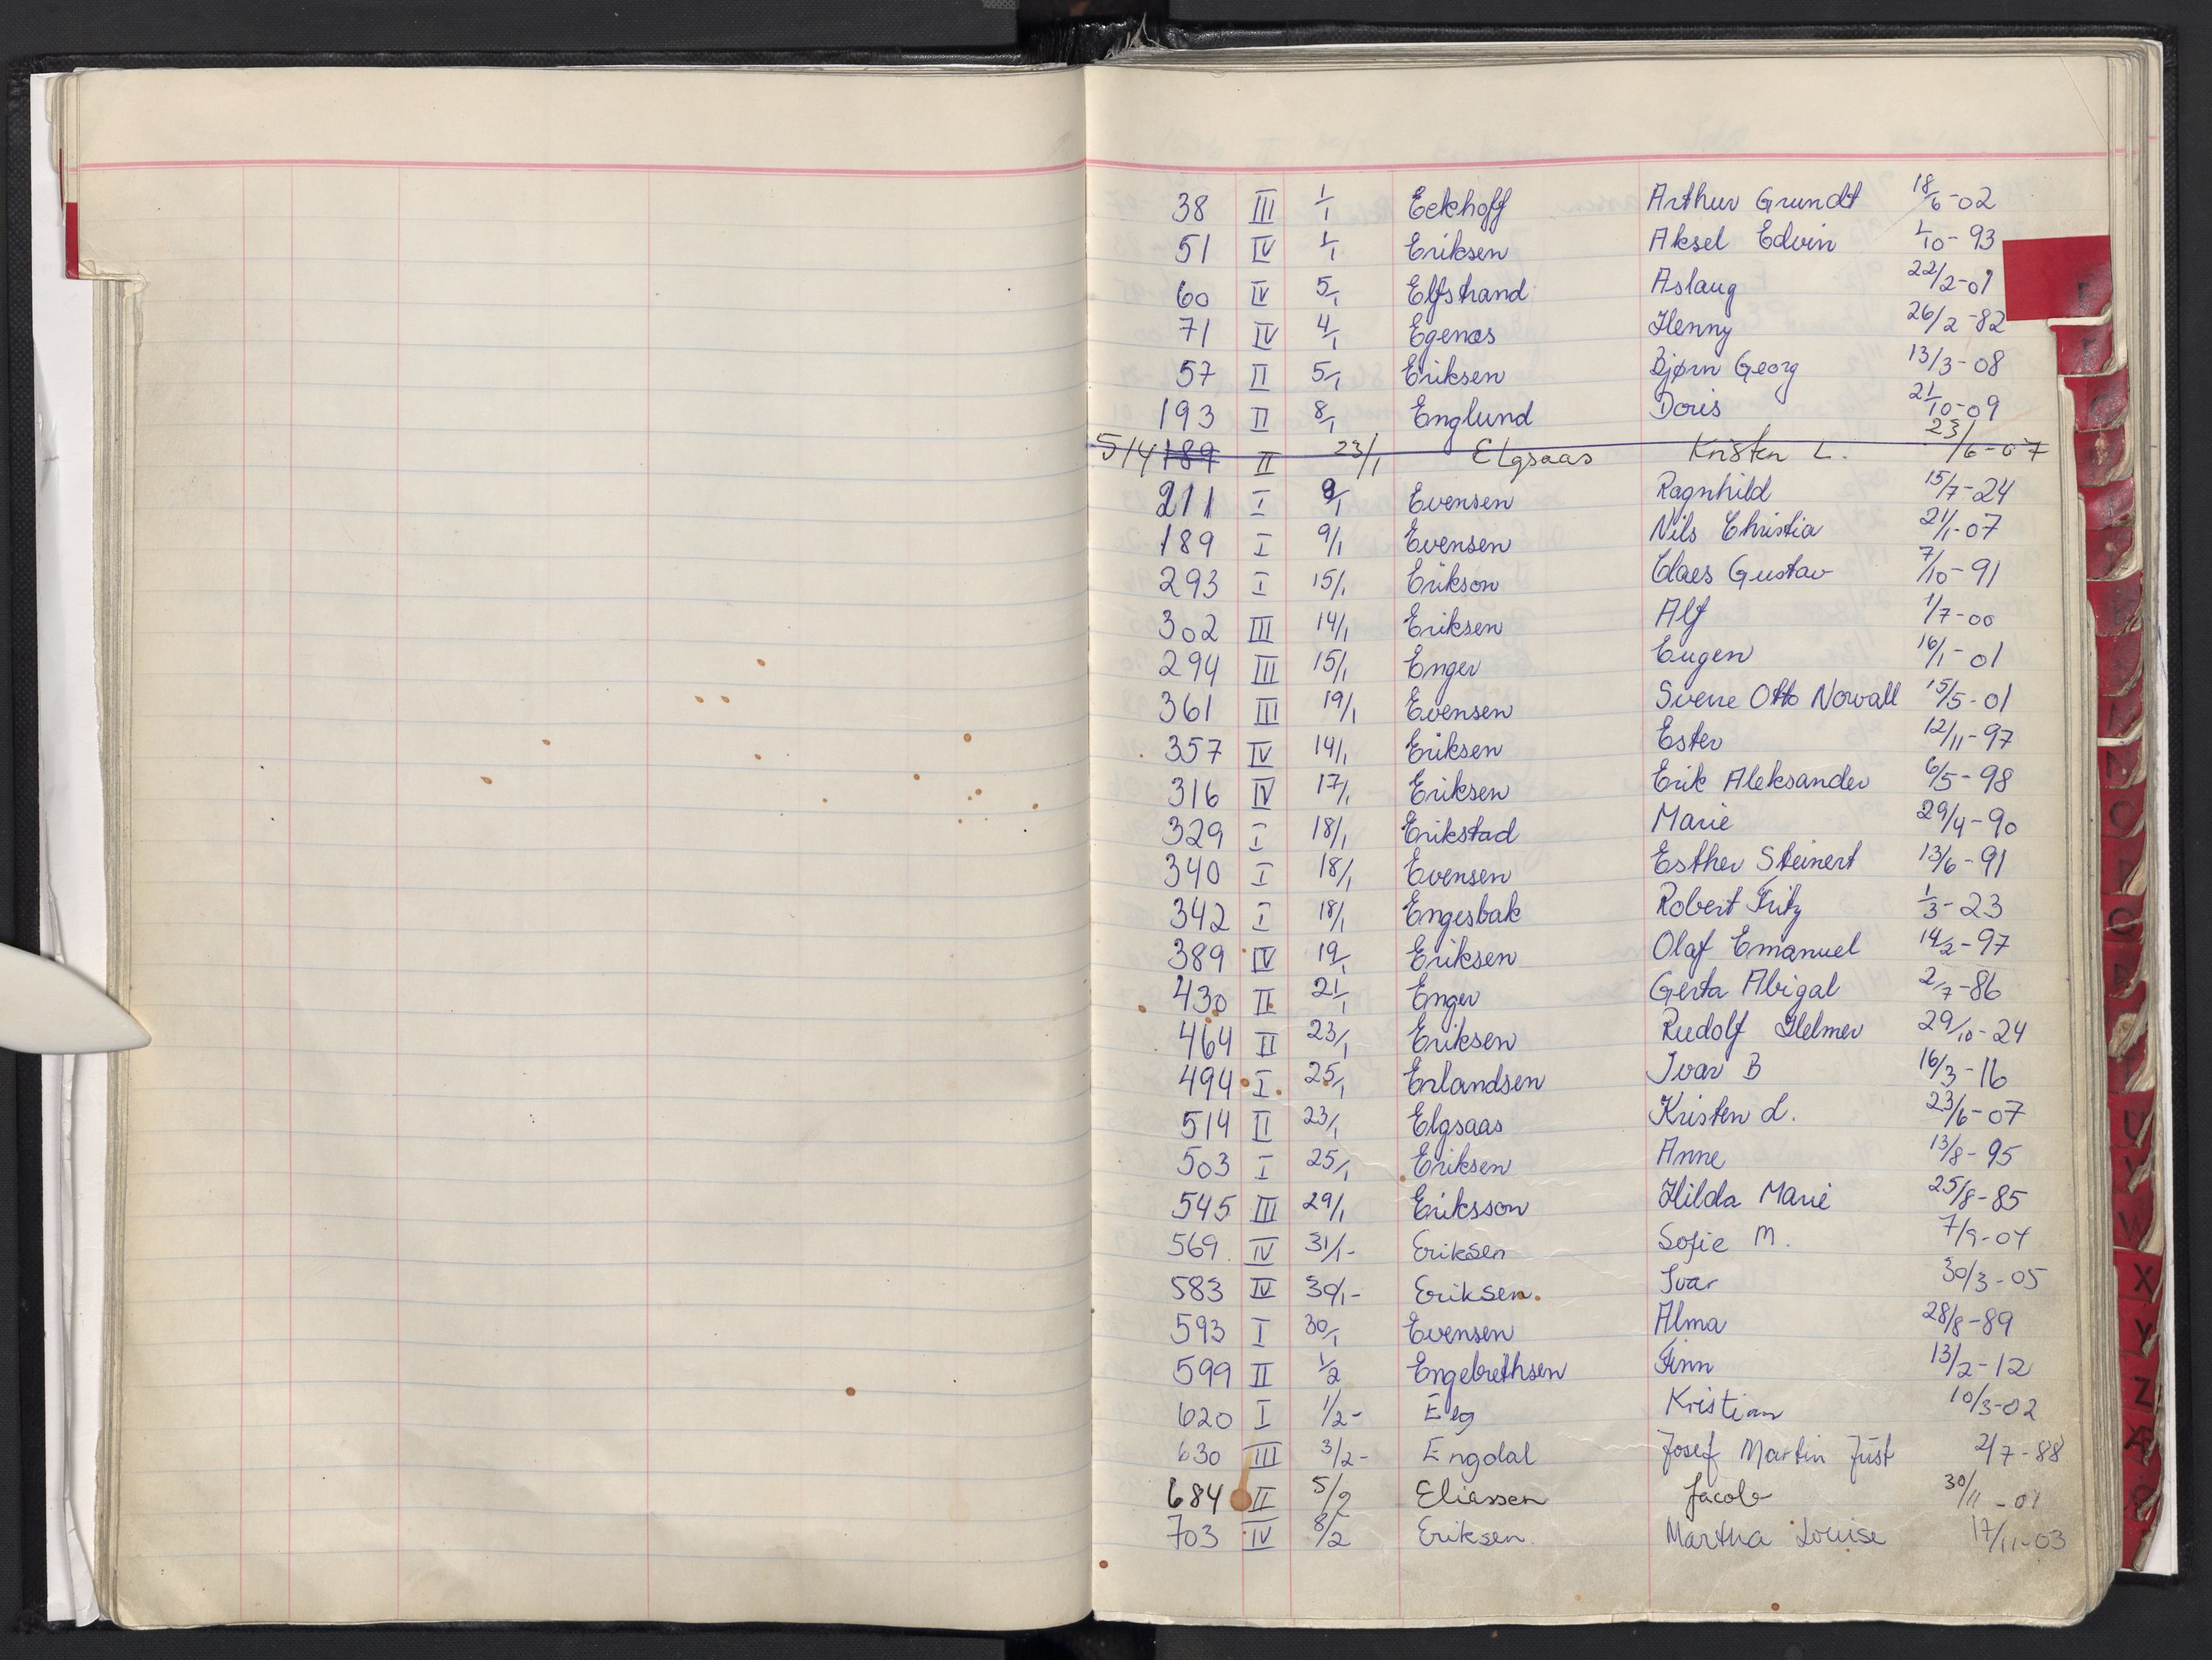 38 III 1/1 Eckhoff Arthur Grundt 18/6-02
51 IV 1/1 Eriksen Aksel Edvin 1/10-93
60 IV 5/1 Elfstrand Aslaug 22/2-01
71 IV 4/1 Egenæs Henny 26/2-82
57 II 5/1 Eriksen Bjørn Georg 13/3-08
193 II 8/1 Englund Doris 21/10-09
514 189 II 23/1 Elgsaas Kristen L. 23/6-07
211 I 9/1 Evensen Ragnhild 15/7-24
189 I 9/1 Evensen Nils Christia 21/1-07
293 I 15/1 Erikson Claes Gustav 7/10-91
302 III 14/1 Eriksen Alf 1/7-00
294 III 15/1 Enger Eugen 16/1-01
361 III 19/1 Evensen Sverre Otto Norvall 15/5-01
357 IV 14/1 Eriksen Ester 12/11-97
316 IV 17/1 Eriksen Erik Aleksander 6/5-98
329 I 18/1 Erikstad Marie 29/4-90
340 I 18/1 Evensen Esther Steinert 13/6-91
342 I 18/1 Engesbak Robert Fritz 1/3-23
389 IV 19/1 Eriksen Olaf Emanuel 14/2-97
430 II 21/1 Enger Gerta Abigal 2/7-86
464 II 23/1 Eriksen Rudolf Helmer 29/10-24
494 I 25/1 Erlandsen Ivar B 16/3-16
514 II 23/1 Elgsaas Kristen L. 23/6-07
503 I 25/1 Eriksen Anne 13/8-95
545 III 29/1 Eriksson Hilda Marie 25/8-85
569 IV 31/1- Eriksen Sofie M. 7/9-04
583 IV 30/1- Eriksen. Ivar 30/3-05
593 I 30/1 Evensen Alma 28/8-89
599 II 1/2 Engebrethsen Finn 13/2-12
620 I 1/2- Elg Kristian 10/3-02
630 III 3/2- Engdal Josef Martin Just 2/7-88
684 II 5/2 Eliassen Jacob 30/11-01
703 IV 8/2 Eriksen. Martha Louise 17/11-03
O
P
U
V
W
X
Y
Z
Æ
Ø